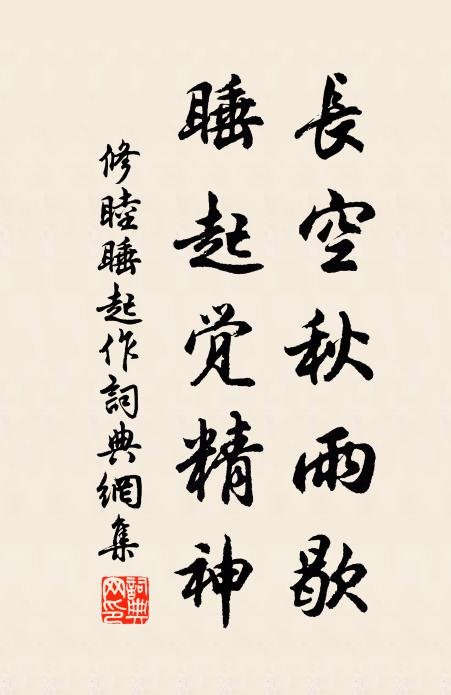 長空秋雨歇
睡起觉精神
修睦睡起作詞典網集
詞典
网印